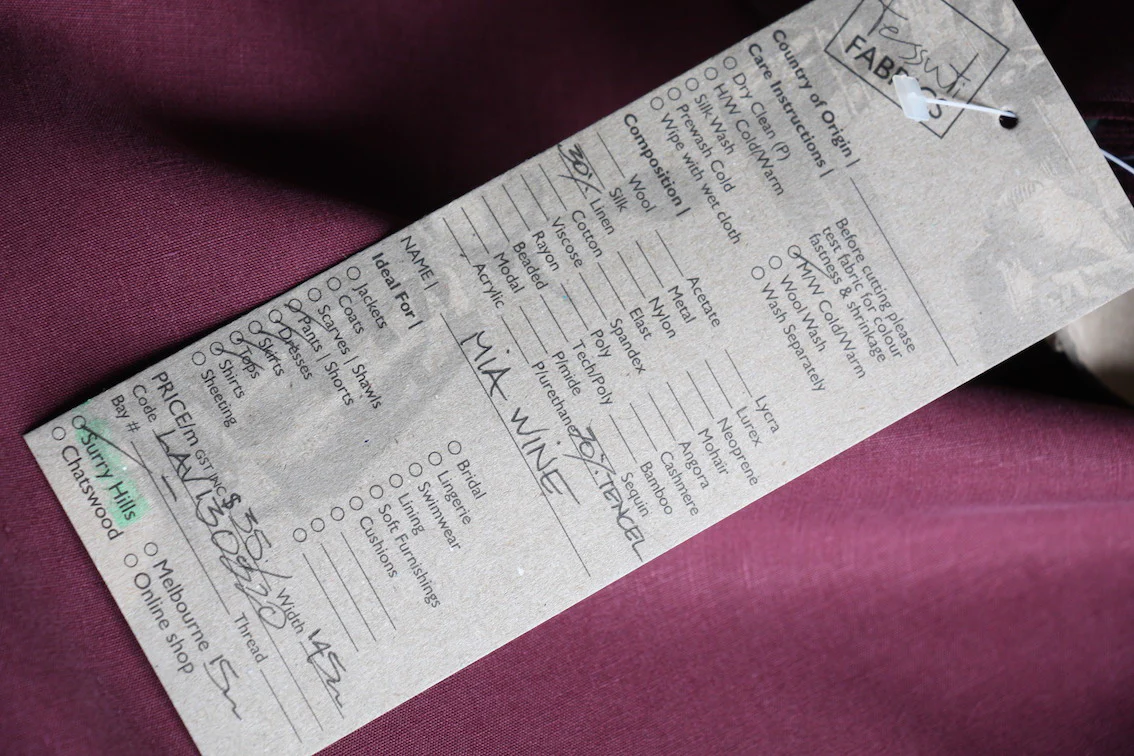 Tessuti
FABRICS
Country of Origin |
Care Instructions |
Dry Clean (P)
H/W Cold/Warm
Silk Wash
Prewash Cold
Wipe with wet cloth
Before cutting please
test fabric for colour
fastness & shrinkage
M/W Cold/Warm
Wool Wash
Wash Separately
Composition |
Wool Acetate Lycra
Silk Metal Lurex
30% Linen Nylon Neoprene
Cotton Elast Mohair
Viscose Spandex Angora
Rayon Poly Cashmere
Beaded Tech/Poly Bamboo
Modal P/imide Sequin
Acrylic P/urethane 70% TENCEL
NAME | MIA WINE
Ideal For |
Jackets Bridal
Coats Lingerie
Scarves | Shawls Swimwear
Pants | Shorts Lining
Dresses Soft Furnishings
Skirts Cushions
Tops
Shirts
Sheeting
PRICE/m GST INC $ 35 / Width 145
Code LAV130820 Thread
Bay #
Surry Hills Melbourne 15m
Chatswood Online shop